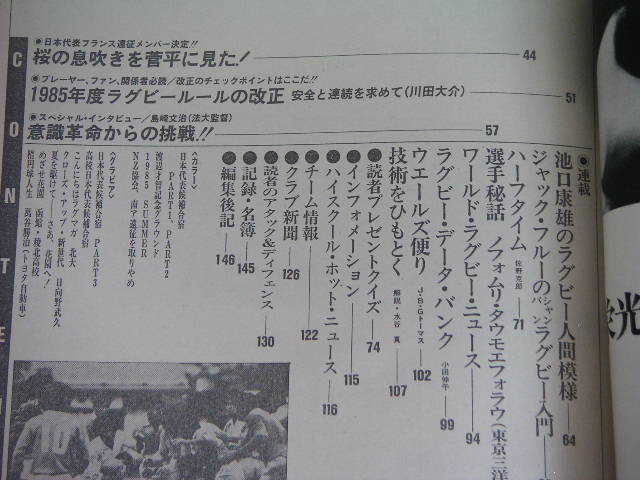 CONTE
●日本代表フランス遠征メンバー決定!!
桜の息吹きを菅平に見た! 44
●プレーヤー、ファン、関係者必読/改正のチェックポイントはここだ!!
1985年度ラグビールールの改正 安全と連続を求めて(川田大介) 51
●スペシャル・インタビュー/島崎文治(法大監督)
意識革命からの挑戦!! 57
●連載
池口康雄のラグビー人間模様 64
ジャック・フルーのシャンパンラグビー入門
ハーフタイム 佐野克郎 71
選手秘話 ノフォムリ・タウモエフォラウ(東京三洋
ワールド・ラグビー・ニュース 94
ラグビー・データ・バンク 小田伸午 99
ウエールズ便り J・B・Gトーマス 102
技術をひもとく 解説・水谷 真 107
読者プレゼントクイズ 74
インフォメーション 115
ハイスクール・ホット・ニュース 116
チーム情報 122
クラブ新聞 126
読者のアタック&ディフェンス 130
記録・名簿 145
編集後記 146
〈カラー〉
日本代表候補合宿
PART1、PART2
渡辺才智記念グラウンド
1985 SUMMER
NZ協会、南ア遠征を取りやめ
〈グラビア〉
日本代表候補合宿 PART3
高校日本代表候補合宿
こんにちはラグマガ 北大
クローズ・アップ・新世代 日向野武久
夏を駆けて――さあ、花園へ!
めざせ花園 函館・稜北高校
楕円球人生 萬谷勝治(トヨタ自動車)
栄光